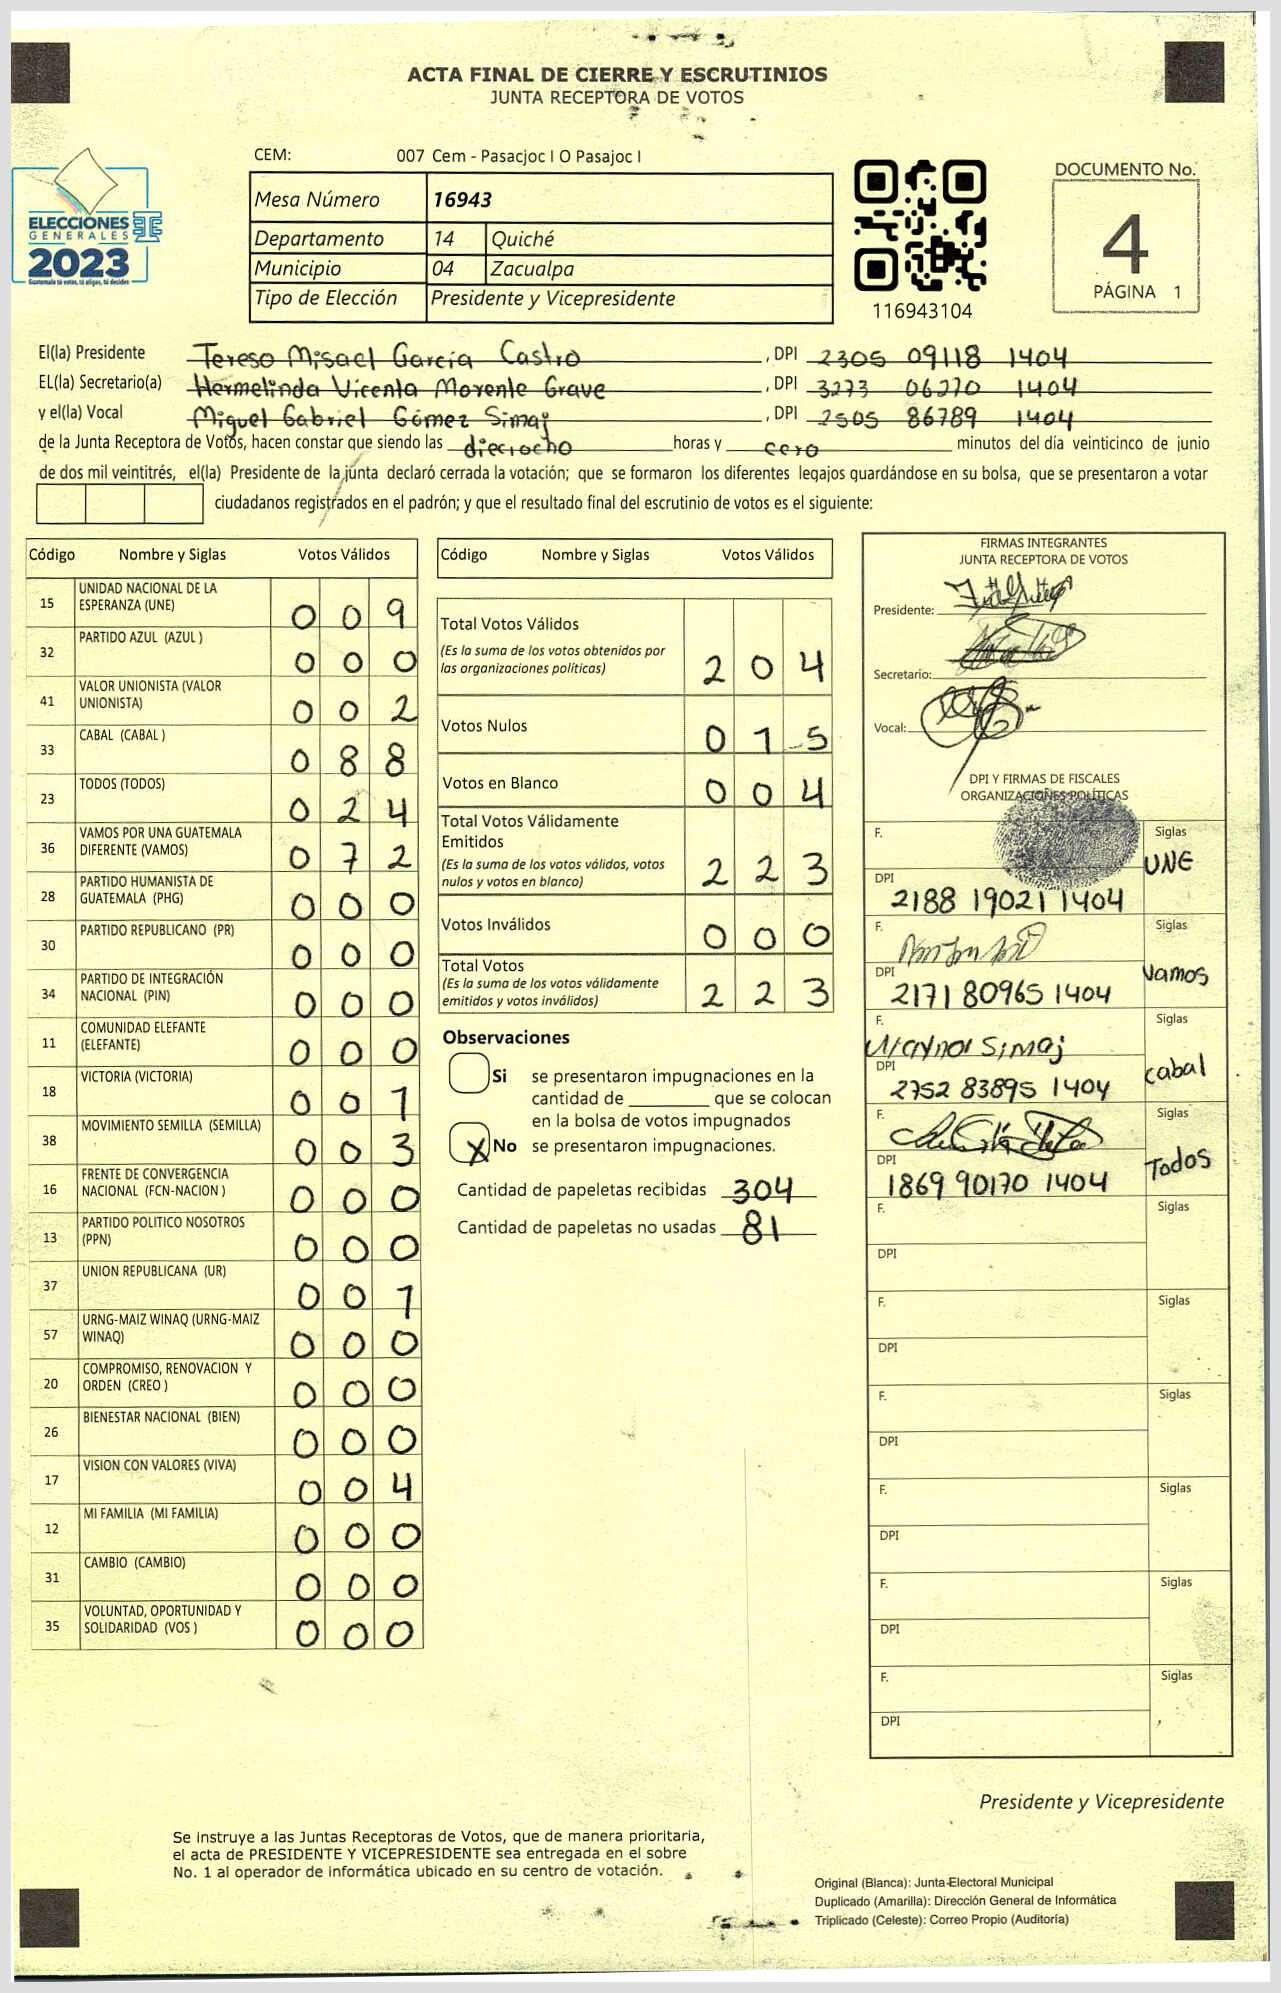 ACTA FINAL DE CIERRE Y ESCRUTINIOS
JUNTA RECEPTORA DE VOTOS
CEM: 007 Cem - Pasacjoc I O Pasajoc I
Mesa Número 16943
Departamento 14 Quiché
Municipio 04 Zacualpa
Tipo de Elección Presidente y Vicepresidente
ELECCIONES
GENERALES
2023
Guatemala tú votas, tú eliges, tú decides
116943104
DOCUMENTO No.
4
PÁGINA 1
El(la) Presidente Tereso Misael García Castro, DPI 2305 09118 1404
EL(la) Secretario(a) Hermelinda Vicenta Morente Grave, DPI 3273 06270 1404
y el(la) Vocal Miguel Gabriel Gómez Simaj, DPI 2505 86789 1404
de la Junta Receptora de Votos, hacen constar que siendo las dieciocho horas y cero minutos del día veinticinco de junio
de dos mil veintitrés, el(la) Presidente de la junta declaró cerrada la votación; que se formaron los diferentes legajos guardándose en su bolsa, que se presentaron a votar
ciudadanos registrados en el padrón; y que el resultado final del escrutinio de votos es el siguiente:
Código Nombre y Siglas Votos Válidos
15 UNIDAD NACIONAL DE LA
ESPERANZA (UNE) 0 0 9
32 PARTIDO AZUL (AZUL ) 0 0 0
41 VALOR UNIONISTA (VALOR
UNIONISTA) 0 0 2
33 CABAL (CABAL ) 0 8 8
23 TODOS (TODOS) 0 2 4
36 VAMOS POR UNA GUATEMALA
DIFERENTE (VAMOS) 0 7 2
28 PARTIDO HUMANISTA DE
GUATEMALA (PHG) 0 0 0
30 PARTIDO REPUBLICANO (PR) 0 0 0
34 PARTIDO DE INTEGRACIÓN
NACIONAL (PIN) 0 0 0
11 COMUNIDAD ELEFANTE
(ELEFANTE) 0 0 0
18 VICTORIA (VICTORIA) 0 0 1
38 MOVIMIENTO SEMILLA (SEMILLA) 0 0 3
16 FRENTE DE CONVERGENCIA
NACIONAL (FCN-NACION ) 0 0 0
13 PARTIDO POLITICO NOSOTROS
(PPN) 0 0 0
37 UNION REPUBLICANA (UR) 0 0 1
57 URNG-MAIZ WINAQ (URNG-MAIZ
WINAQ) 0 0 0
20 COMPROMISO, RENOVACION Y
ORDEN (CREO ) 0 0 0
26 BIENESTAR NACIONAL (BIEN) 0 0 0
17 VISION CON VALORES (VIVA) 0 0 4
12 MI FAMILIA (MI FAMILIA) 0 0 0
31 CAMBIO (CAMBIO) 0 0 0
35 VOLUNTAD, OPORTUNIDAD Y
SOLIDARIDAD (VOS ) 0 0 0
Código Nombre y Siglas Votos Válidos
Total Votos Válidos
(Es la suma de los votos obtenidos por
las organizaciones políticas) 2 0 4
Votos Nulos 0 1 5
Votos en Blanco 0 0 4
Total Votos Válidamente
Emitidos
(Es la suma de los votos válidos, votos
nulos y votos en blanco) 2 2 3
Votos Inválidos 0 0 0
Total Votos
(Es la suma de los votos válidamente
emitidos y votos inválidos) 2 2 3
Observaciones
Si se presentaron impugnaciones en la
cantidad de ________ que se colocan
en la bolsa de votos impugnados
X No se presentaron impugnaciones.
Cantidad de papeletas recibidas 304
Cantidad de papeletas no usadas 81
FIRMAS INTEGRANTES
JUNTA RECEPTORA DE VOTOS
Presidente:
Secretario:
Vocal:
DPI Y FIRMAS DE FISCALES
ORGANIZACIONES POLÍTICAS
F. Siglas
UNE
DPI
2188 19021 1404
F. Siglas
Vamos
DPI
2171 80965 1404
F. Siglas
Simaj
cabal
DPI
2752 83895 1404
F. Siglas
Todos
DPI
1869 90170 1404
F. Siglas
DPI
F. Siglas
DPI
F. Siglas
DPI
F. Siglas
DPI
F. Siglas
DPI
F. Siglas
DPI
Presidente y Vicepresidente
Se instruye a las Juntas Receptoras de Votos, que de manera prioritaria,
el acta de PRESIDENTE Y VICEPRESIDENTE sea entregada en el sobre
No. 1 al operador de informática ubicado en su centro de votación.
Original (Blanca): Junta Electoral Municipal
Duplicado (Amarilla): Dirección General de Informática
Triplicado (Celeste): Correo Propio (Auditoría)